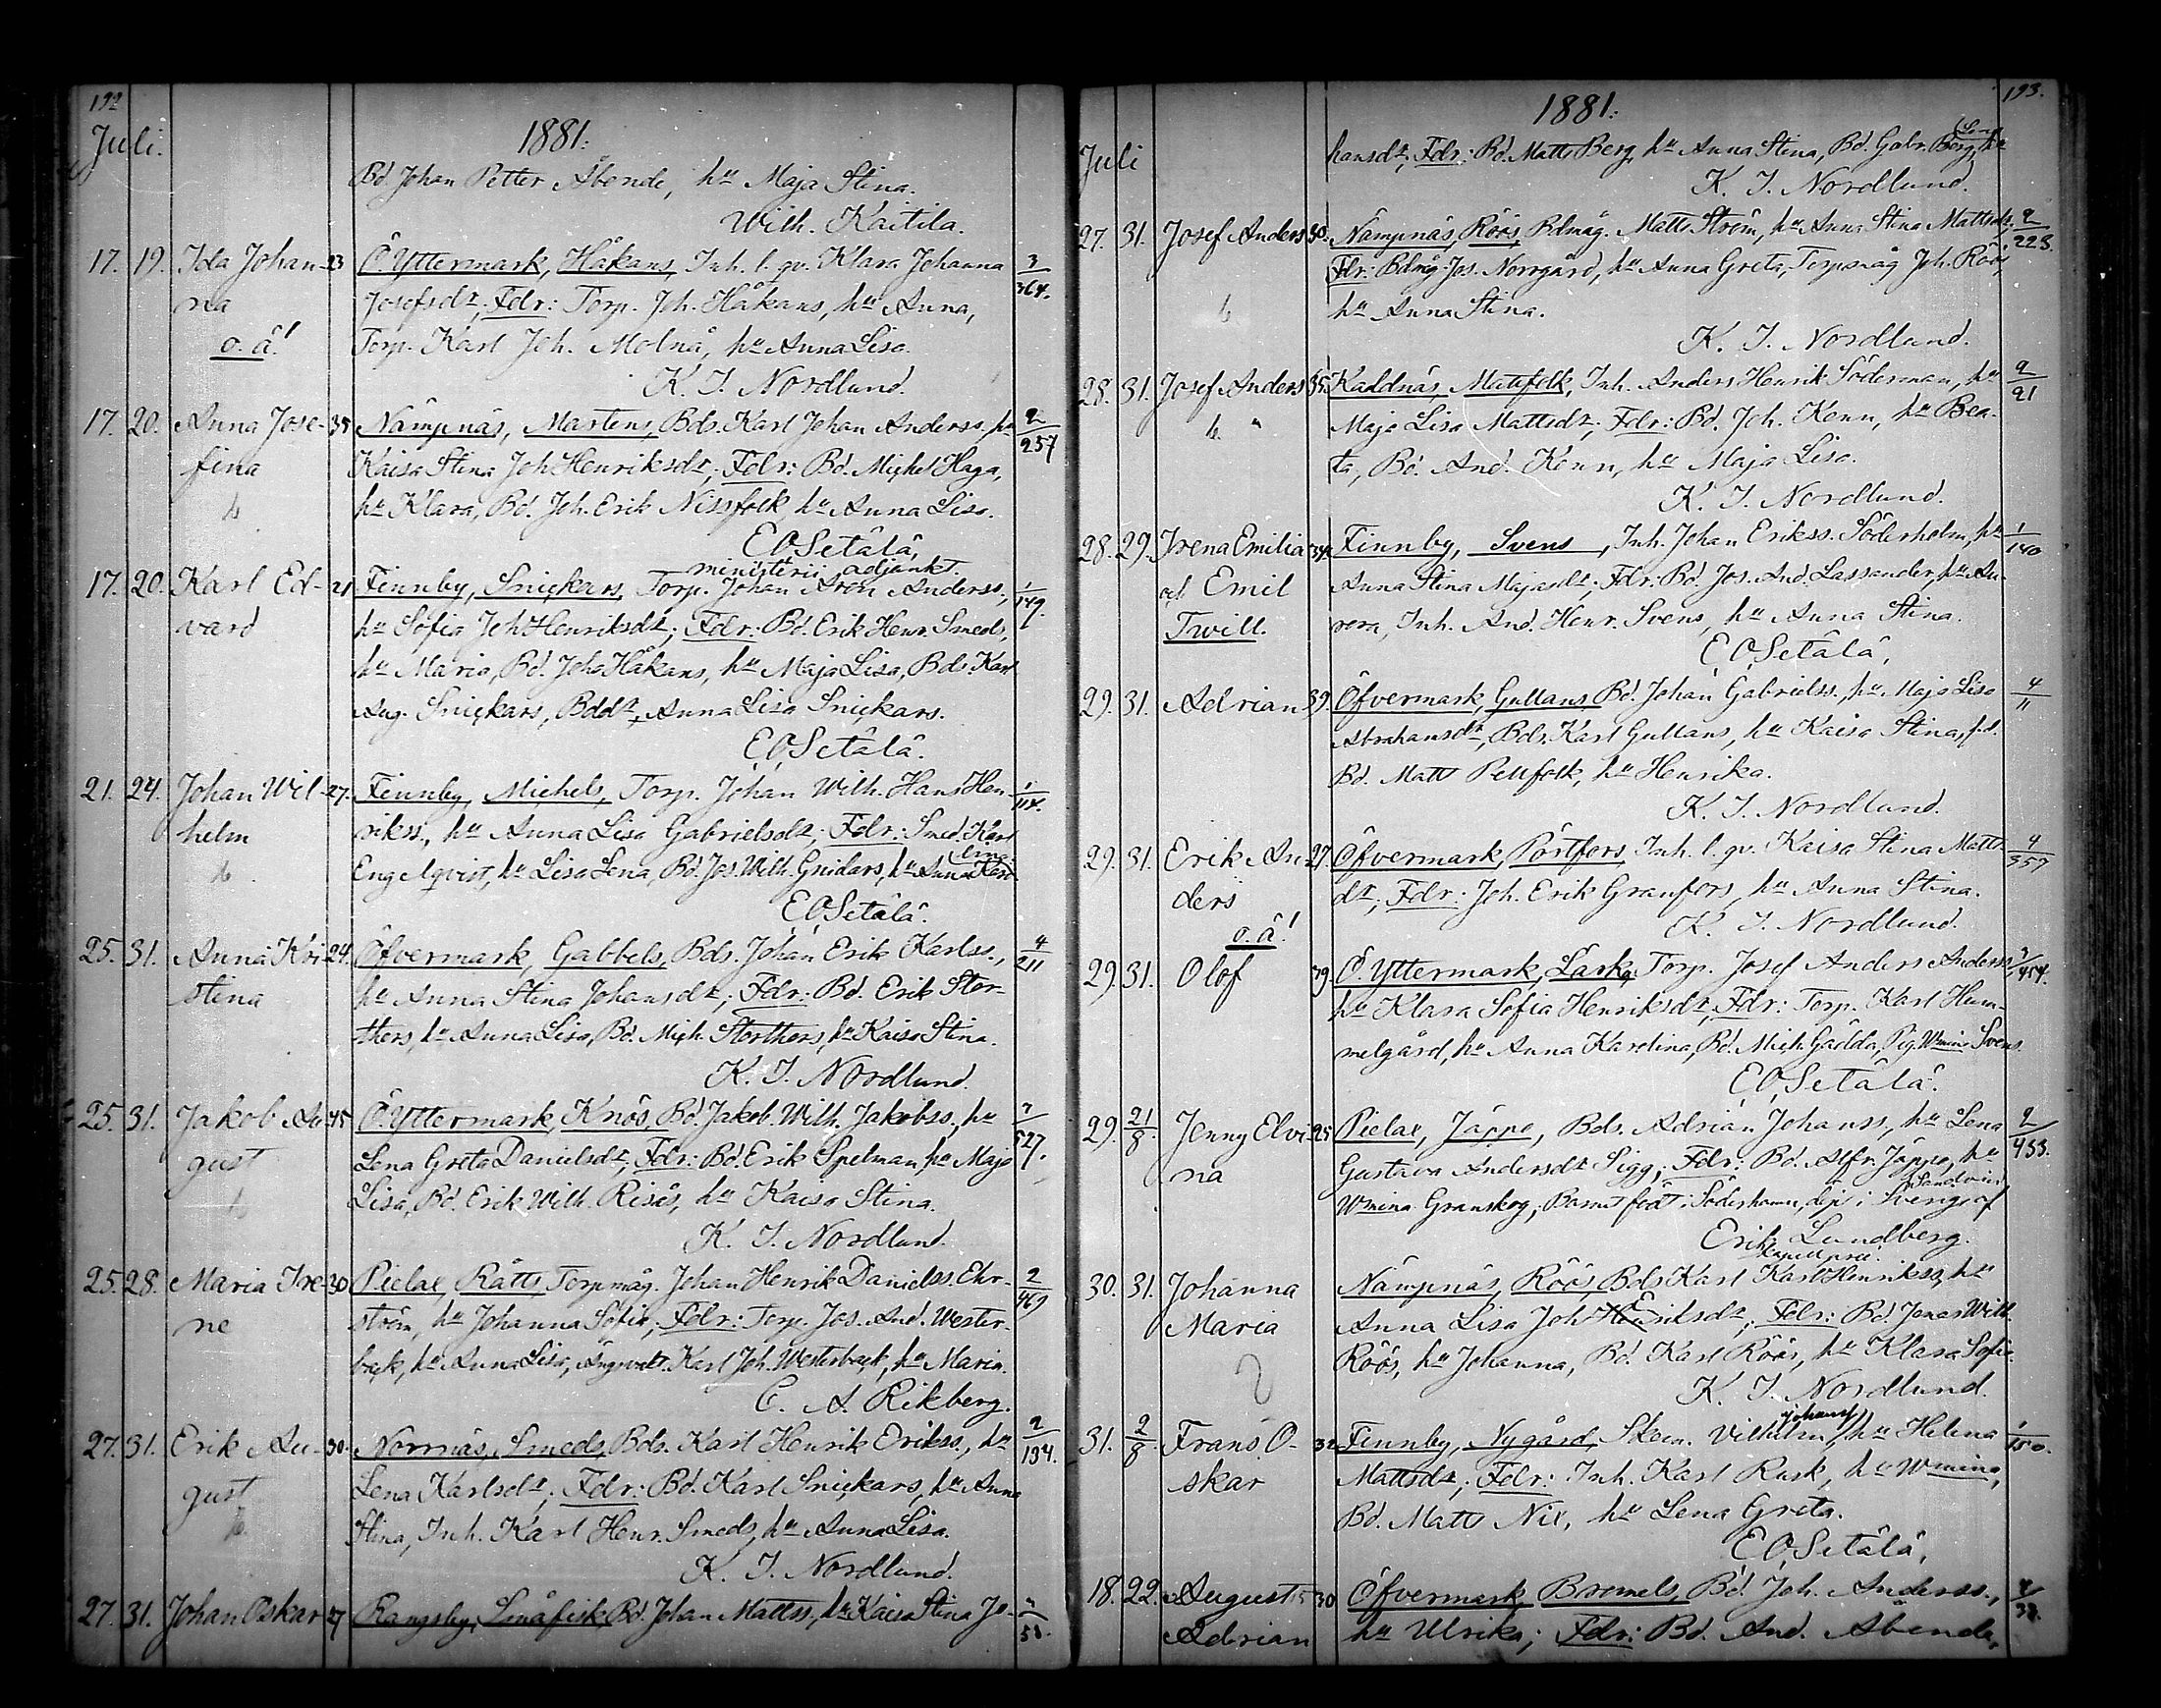 192
Juli.
1881.
Bd Johan Petter Åbonde, hu Maja Stina.
Wilh. Kaitila.
17. 19. Ida Johan- 23 Ö. Yttermark, Håkans, Inh. l. qv. Klara Johanna 3/364.
na Josefsdr; Fdr: Torp. Joh. Håkans, hu Anna,
o. ä! Torp. Karl Joh. Molnå, hu Anna Lisa.
K. I. Nordlund.
17. 20. Anna Jose- 35 Nämpnäs, Martens, Bds. Karl Johan Anderss. hu 2/257
fina Kaisa Stina Joh Henriksdr; Fdr: Bd. Michel Haga,
hu Klara, Bd. Joh. Erik Nissfolk, hu Anna Lisa.
E. O. Setälä,
ministerii adjunkt.
17. 20. Karl Ed- 21 Finnby, Snickars, Torp. Johan Aron Anderss., 1/149.
vard hu Sofia Joh Henriksdr; Fdr: Bd. Erik Henr. Smeds,
hu Maria, Bd. Joh. Håkans, hu Maja Lisa, Bds. Karl
Aug. Snickars, Bddr, Anna Lisa Snickars.
E. O. Setälä.
21. 24. Johan Wil- 27. Finnby, Michels, Torp. Johan Wilh. Hans Hen- 1/114.
helm rikss., hu Anna Lisa Gabrielsdr; Fdr: Smed. Karl
Engelqvist, hu Lisa Lena, Bd. Jos. Wilh. Gnidars, hu Anna Karo-
lina.
E. O. Setälä.
25. 31. Anna Kri- 24. Öfvermark, Gabbels, Bds. Johan Erik Karlss., 4/211
stina hu Anna Stina Johansdr; Fdr: Bd. Erik Stor-
thors, hu Anna Lisa, Bd. Mich. Storthors, hu Kaisa Stina.
K. I. Nordlund.
25. 31. Jakob Au- 45 Ö. Yttermark, Knös, Bd. Jakob Wilh. Jakobss., hu 3/527.
gust Lena Greta Danielsdr; Fdr: Bd. Erik Spelman, hu Maja
Lisa, Bd. Erik Wilh. Risås, hu Kaisa Stina.
K. I. Nordlund.
25. 28. Maria Ire- 30 Pielax, Rätts, Torpmåg. Johan Henrik Danielss. Ehr- 2/469
ne ström, hu Johanna Sofia; Fdr: Torp. Jos. And. Wester-
back, hu Anna Lisa, Karl Joh. Westerback, hu Maria.
C. A. Rikberg.
27. 31. Erik Au- 30. Norrnäs, Smeds, Bds. Karl Henrik Erikss., hu 2/194.
gust Lena Karlsdr; Fdr: Bd. Karl Snickars, hu Anna
Stina, Inh. Karl Henr. Smeds, hu Anna Lisa.
K. I. Nordlund.
27. 31. Johan Oskar 27 Rangsby, Småfisk, Bd. Johan Mattss., hu Kaisa Stina Jo- 53.
193.
Juli
1881.
hansdr; Fdr: Bd. Matts Berg, hu Anna Stina, Bd. Gabr. Berg, hu
K. I. Nordlund.
27. 31. Josef Anders 30. Nämpnäs, Röös, Bdmåg. Matts Ström, hu Anna Stina Mattsdr; 2/223.
Fdr: Bdmåg. Jos. Norrgård, hu Anna Greta, Torpmåg Joh. Röös,
hu Anna Stina.
K. I. Nordlund.
28. 31. Josef Anders 35 Kaldnäs, Mattfolk, Inh. Anders Henrik Söderman, hu 2/21
Maja Lisa Mattsdr; Fdr: Bd. Joh. Kenn, hu Bea-
ta, Bd. And. Kenn, hu Maja Lisa.
K. I. Nordlund.
28. 29. Irena Emilia 34. Finnby, Svens, Inh. Johan Erikss. Söderholm, hu 1/140
af Emil Anna Stina Majasdr; Fdr: Bd. Jos. And. Lassander, hu Au-
Twill. rora, Inh. And. Henr. Svens, hu Anna Stina.
E. O. Setälä,
29. 31. Adrian 39. Öfvermark, Gullans, Bd. Johan Gabrielss., hu Maja Lisa 4/11
Abrahamsdr, Bds. Karl Gullans, hu Kaisa Stina, f.d.
Bd. Matts Pellfolk, hu Henrika.
K. I. Nordlund.
29. 31. Erik An- 27. Öfvermark, Pörtfors, Inh. l. qv. Kaisa Stina Matts- 4/357
ders dr; Fdr: Joh. Erik Granfors, hu Anna Stina.
o. ä! K. I. Nordlund.
29. 31. Olof 39. Ö. Yttermark, Larka, Torp. Josef Anders Anderss. 3/454.
hu Klara Sofia Henriksdr, Fdr: Torp. Karl Hum-
melgård, hu Anna Karolina, Bd. Mich. Gädda, Pig. Wmina Svens.
E. O. Setälä.
29. 21/8. Jenny Elvi- 25 Pielax, Jäppo, Bds. Adrian Johanss, hu Lena 2/433.
na Gustava Andersdr Sigg; Fdr: Bd. Alfr. Jäppo, hu
Wmina Granskog; Barnet födt i Söderhamn, döpt i Sverige, af
Erik Lundberg.
30. 31. Johanna Nämpnäs, Röös, Bds Karl Karl Henrikss, hu
Maria Anna Lisa Joh Eriksdr; Fdr: Bd. Jonas Wilh.
Röös, hu Johanna, Bd. Karl Röös, hu Klara Sofia.
K. I. Nordlund.
31. 2/8. Frans O- 32 Finnby, Nygård, Skom. Vilhelm Johanss, hu Helena 1/150.
skar Mattsdr; Fdr: Inh. Karl Rusk, hu Wmina,
Bd. Matts Nix, hu Lena Greta.
E. O. Setälä,
18. 22. August 30 Öfvermark, Brommels, Bd. Joh. Anderss., 4/38.
Adrian hu Ulrika; Fdr: Bd. And. Åbonde,